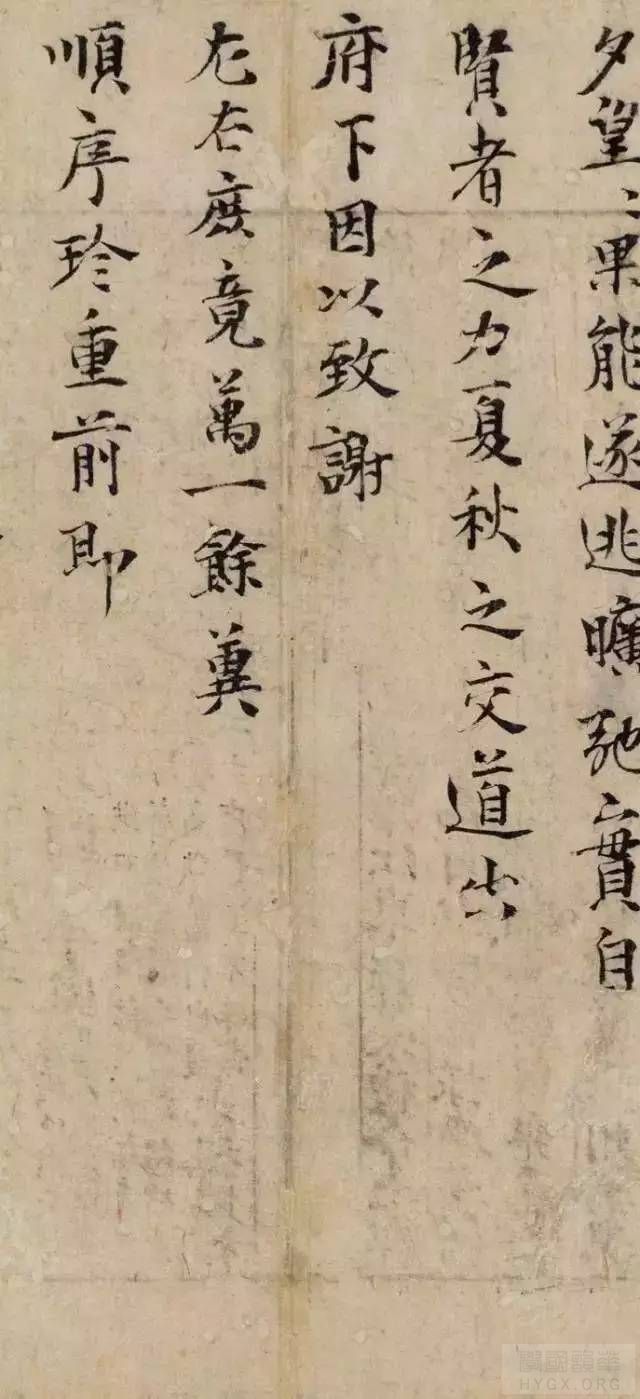 夕望〻果能遂逃曠弛實自
賢者之力夏秋之交道出
府下因以致謝
左右庶竟萬一餘冀
順序珍重前即
學國韻華
HYGX.ORG